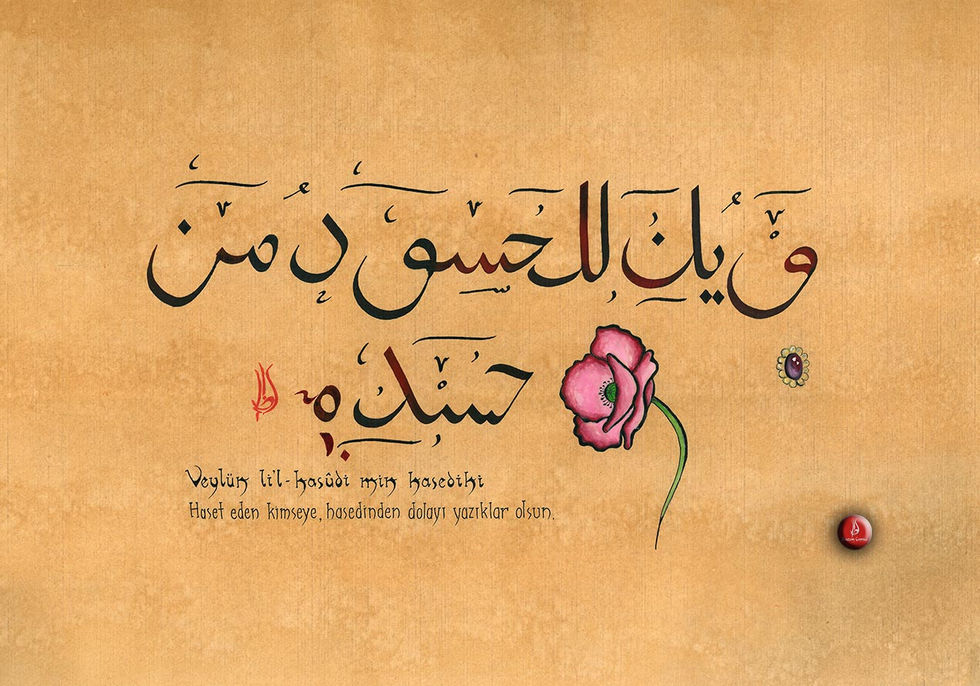 وَيْلٌ لِلْحَسُودِ مِنْ
حَسَدِهِ
Veylün li'l-hasûdi min hasedihi
Haset eden kimseye, hasedinden dolayı yazıklar olsun.